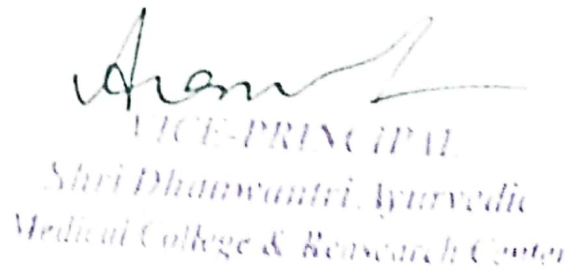 VICE-PRINCIPAL
Shri Dhanwantri Ayurvedic
Medical College & Reasearch Center